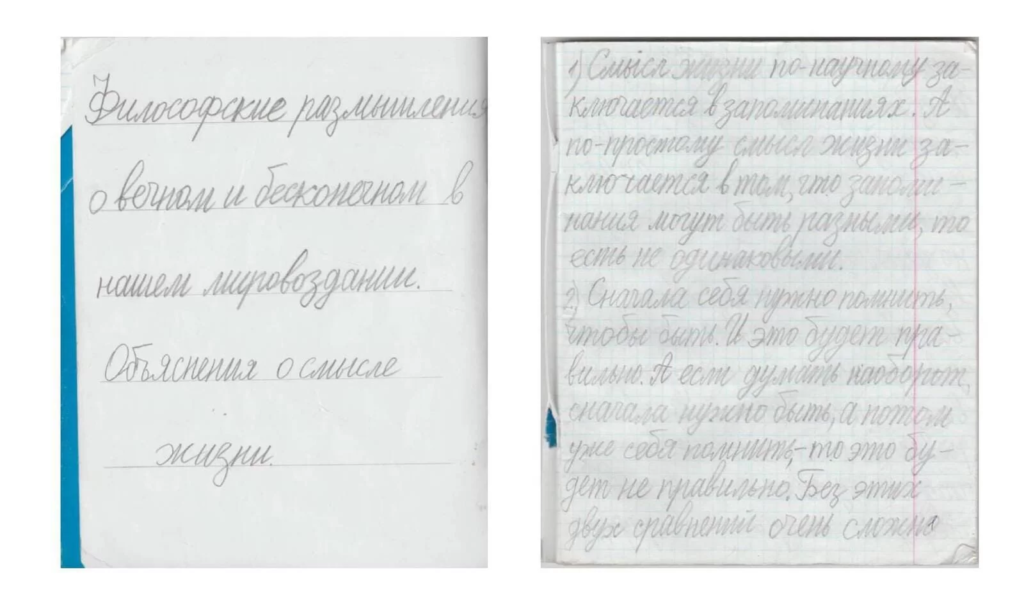 Философские размышления
о вечном и бесконечном в
нашем мировоздании.
Объяснения о смысле
жизни.
1) Смысл жизни по-научному за-
ключается в запоминаниях. А
по-простому смысл жизни за-
ключается в том, что запоми-
нания могут быть разными, то
есть не одинаковыми.
2) Сначала себя нужно помнить,
чтобы быть. И это будет пра-
вильно. А если думать наоборот,
сначала нужно быть, а потом
уже себя помнить,-то это бу-
дет не правильно. Без этих
двух сравнений очень сложно